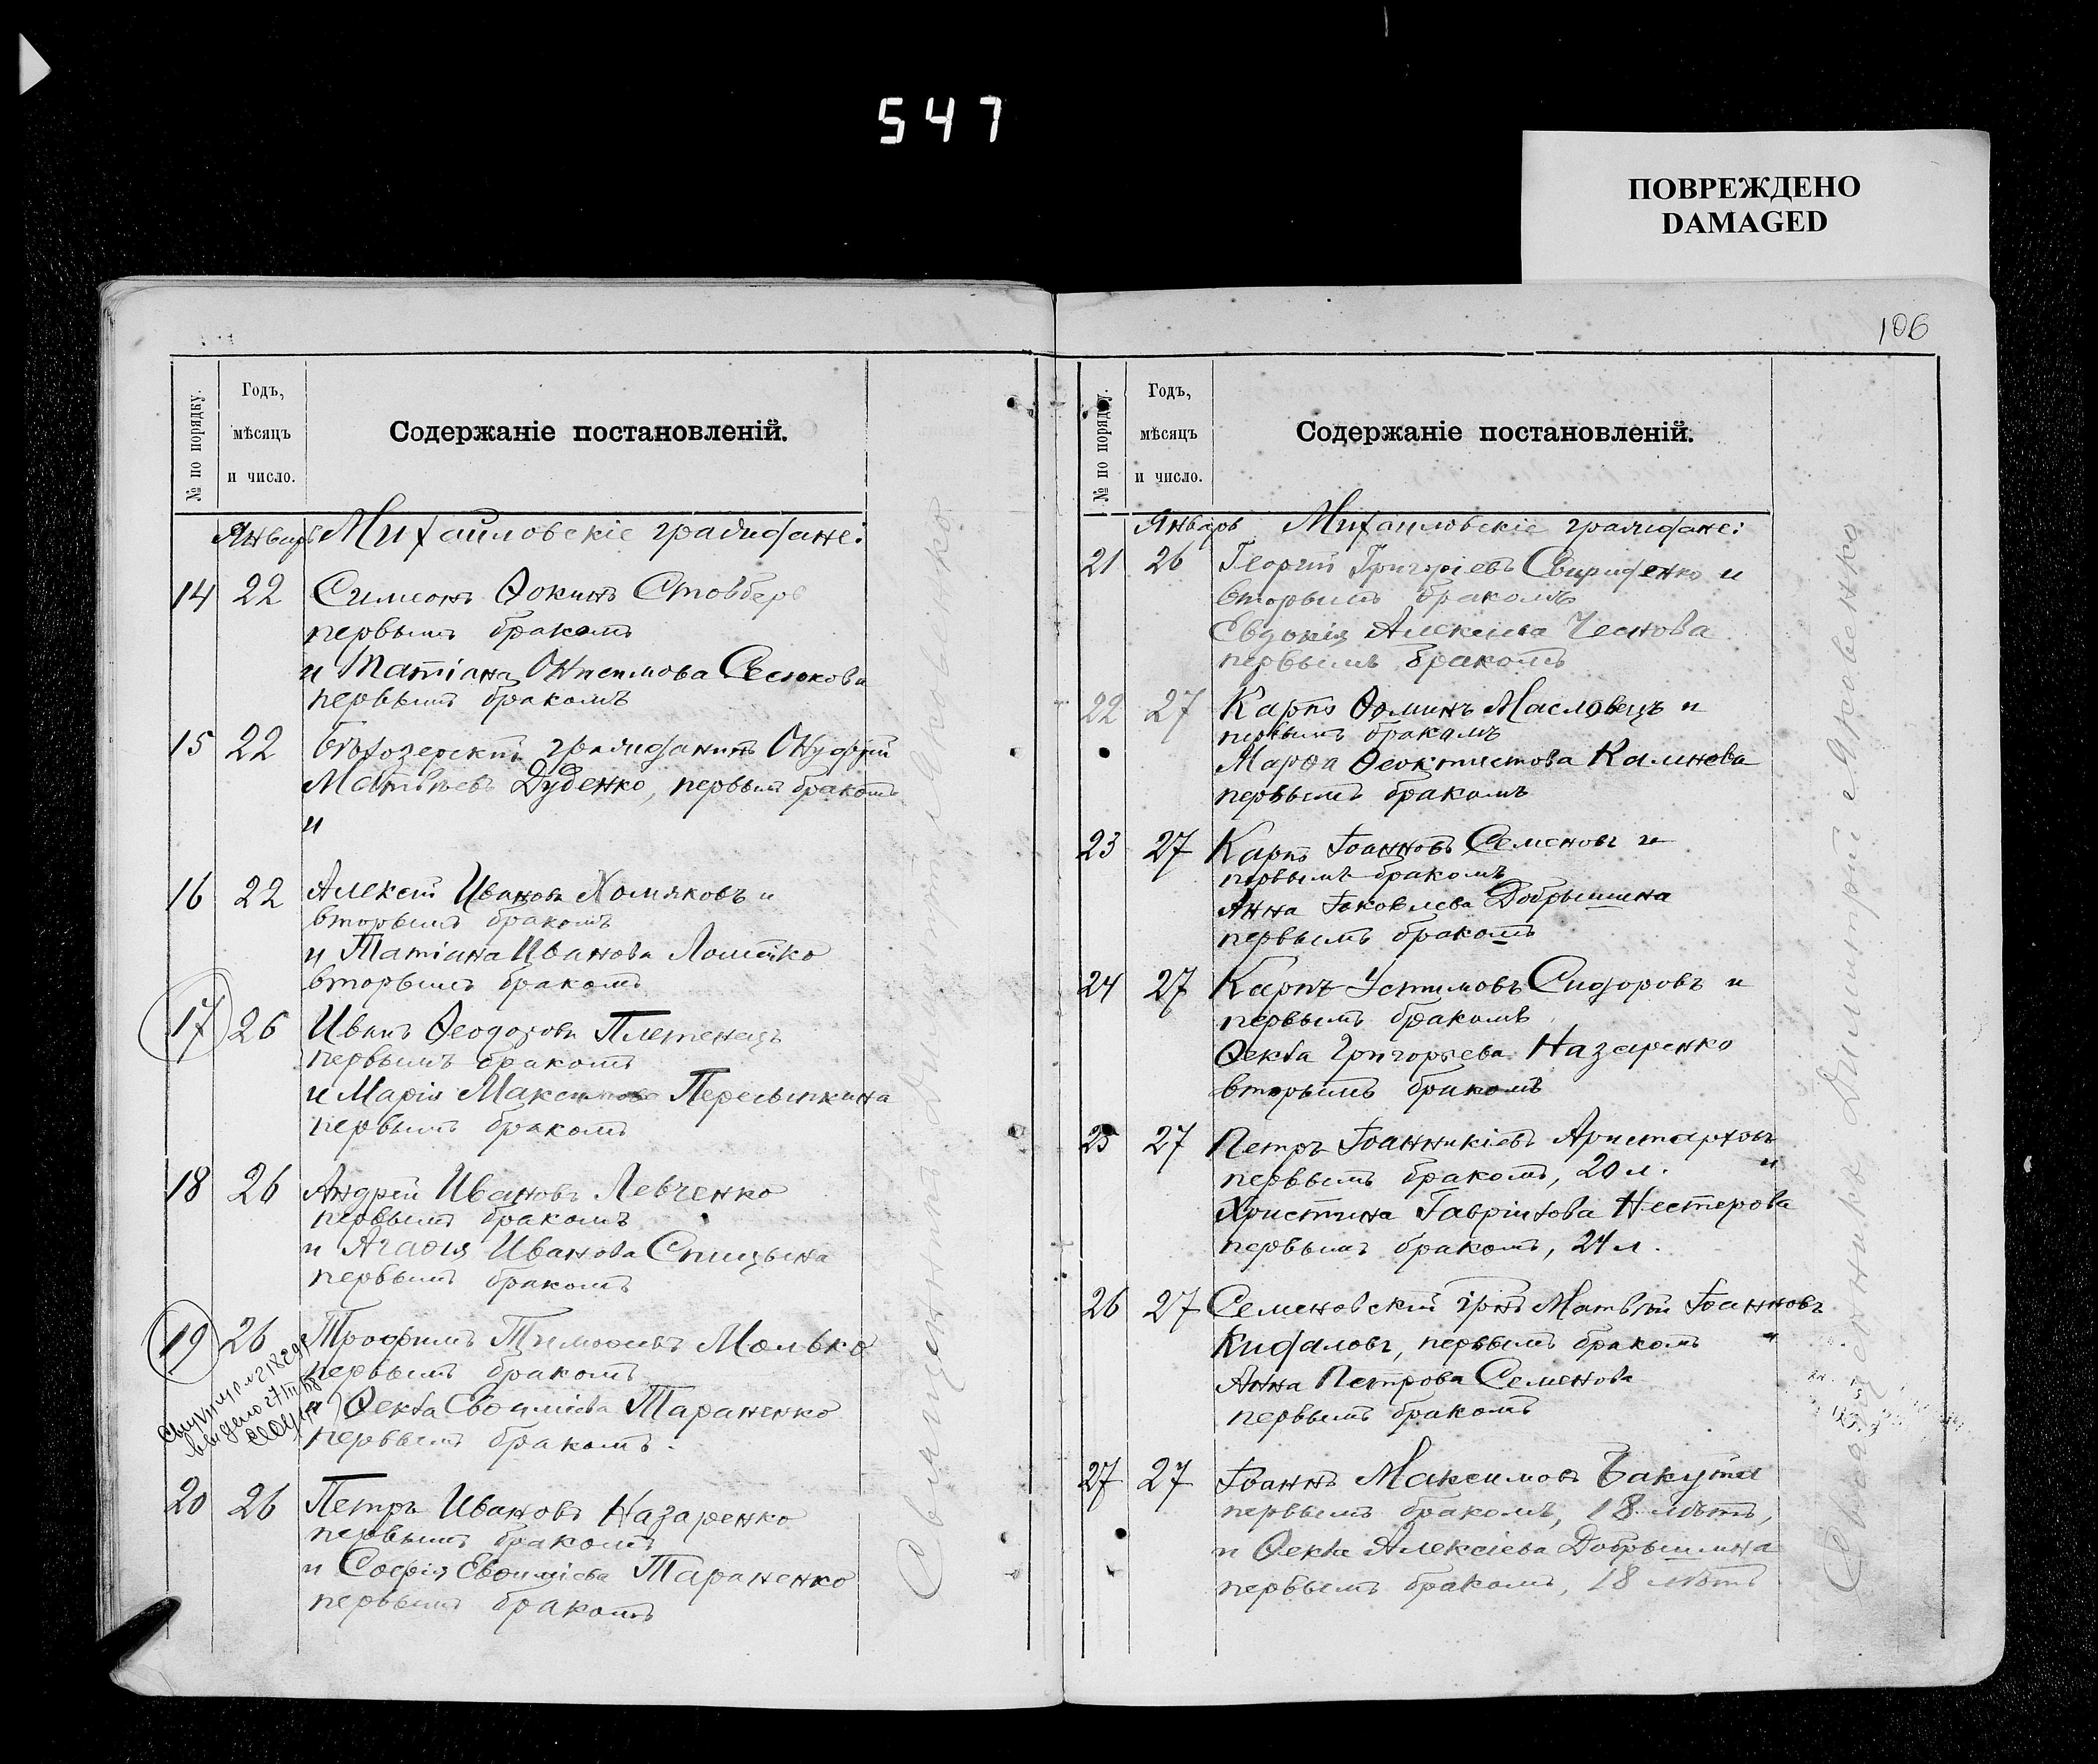 547
ПОВРЕЖДЕНО
DAMAGED
№ по порядку.
Годъ,
мѣсяцъ
и число.
Содержаніе постановленій.
Январь Михайловскіе граждане:
14 22 Симеонъ Ѳокинъ Стовберъ
первымъ бракомъ
и Татіана Онисимова Сесюкова
первымъ бракомъ
15 22 Бѣлозерскій гражданинъ Онуфрій
Матвѣевъ Дуденко, первымъ бракомъ
и
16 22 Алексій Ивановъ Хомяковъ и
вторымъ бракомъ
и Татіана Иванова Ломейко
вторымъ бракомъ
17 26 Иванъ Ѳеодоровъ Плетенецъ
первымъ бракомъ
и Марія Максимова Пересыпкина
первымъ бракомъ
18 26 Андрей Ивановъ Левченко
первымъ бракомъ
и Агаѳія Иванова Спицына
первымъ бракомъ
19 26 Трофимъ Тимоѳеевъ Молько
первымъ бракомъ
и Ѳекла Евѳиміева Тараненко
первымъ бракомъ.
выдано
20 26 Петръ Ивановъ Назаренко
первымъ бракомъ
и Софія Евѳиміева Тараненко
первымъ бракомъ
Священникъ Димитрій Яковенко
106
№ по порядку.
Годъ,
мѣсяцъ
и число.
Содержаніе постановленій.
Январь Михайловскіе граждане:
21 26 Георгій Григоріевъ Свириденко и
вторымъ бракомъ
Евдокія Алексіева Чеснова
первымъ бракомъ
22 27 Карпъ Ѳоминъ Масловецъ и
первымъ бракомъ
Марѳа Ѳеоктистова Калинова
первымъ бракомъ
23 27 Карпъ Іоанновъ Семеновъ и
первымъ бракомъ
Анна Іаковлева Добрышина
первымъ бракомъ
24 27 Карпъ Устимовъ Сидоровъ и
первымъ бракомъ
Ѳекла Григорьева Назаренко
вторымъ бракомъ
25 27 Петръ Іоанникіевъ Аристарховъ
первымъ бракомъ, 20 л. и
Христина Гавріилова Нестерова
первымъ бракомъ, 24 л.
26 27 Семеновскій грнъ Матвѣй Іоанновъ
Кидаловъ, первымъ бракомъ и
Анна Петрова Семенова
первымъ бракомъ
27 27 Іоаннъ Максимовъ Бакута
первымъ бракомъ, 18 лѣтъ,
и Ѳекла Алексіева Добрышина
первымъ бракомъ, 18 лѣтъ
Священникъ Димитрій Яковенко